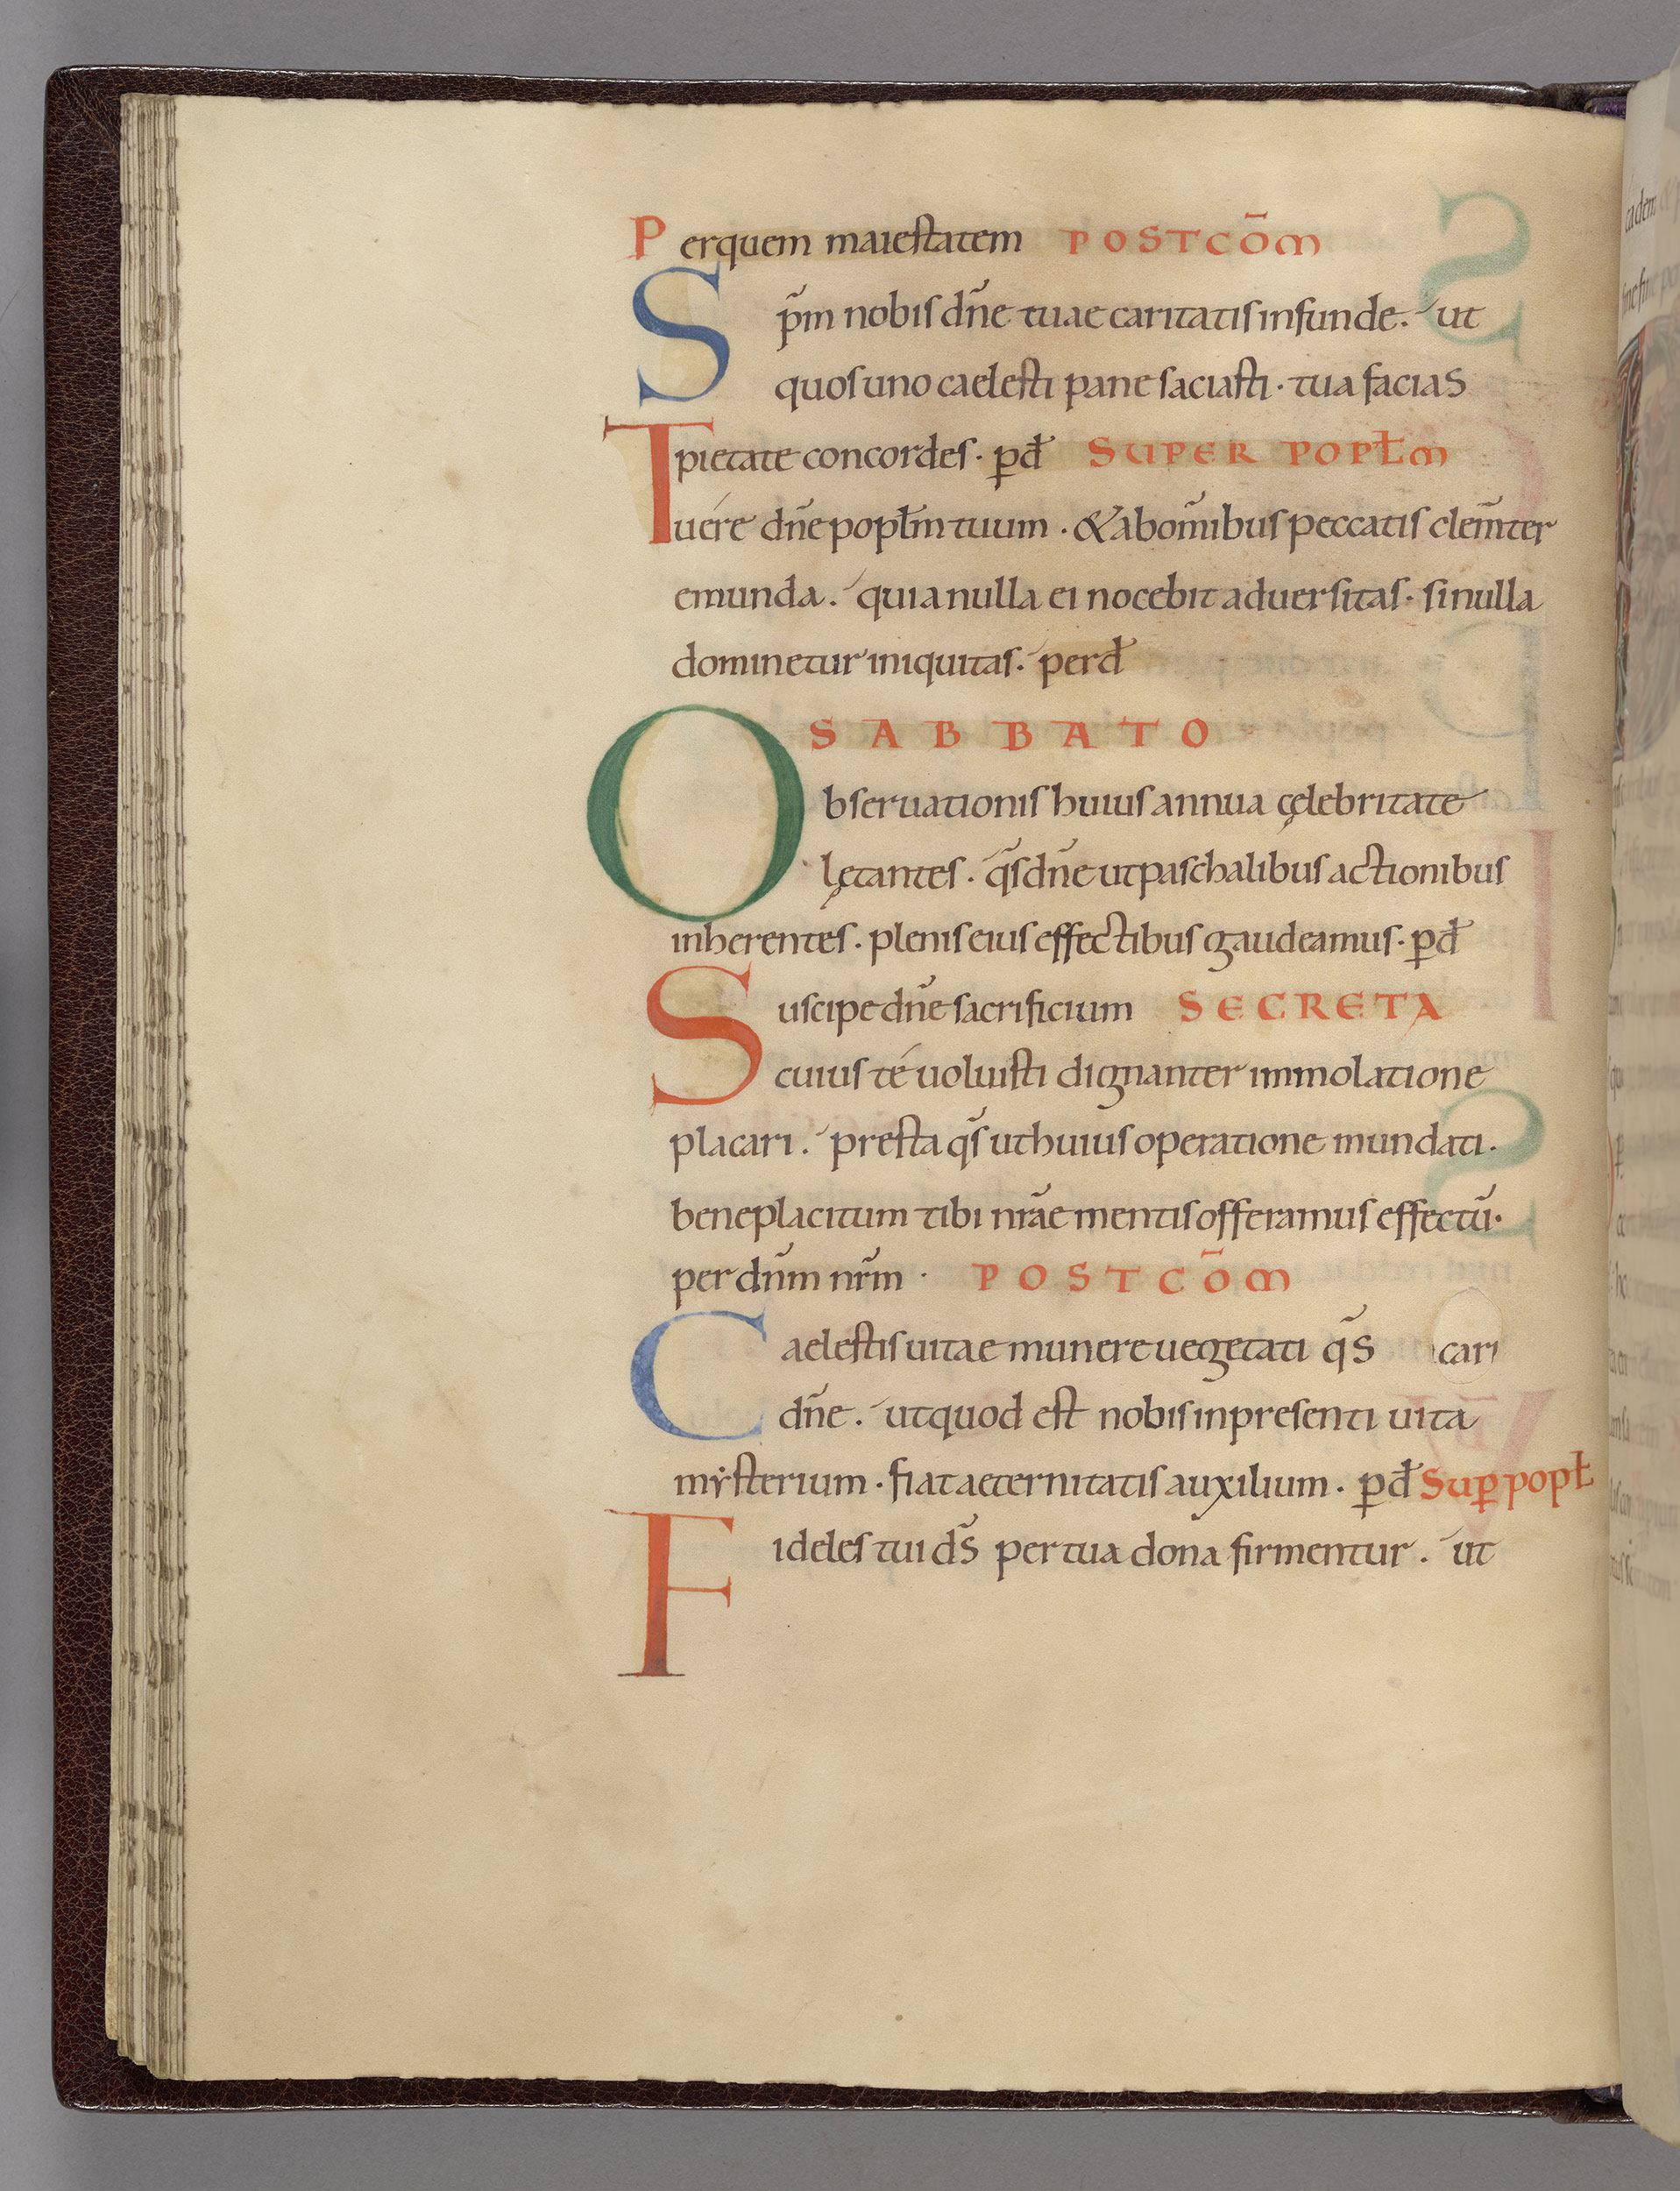 Perquem maiestatem POSTCOM̄
Sp̄m nobis dn̄e tuae caritatis infunde. ut
quos uno caelesti pane saciasti · tua facias
pietate concordes · ꝑđ SUPER POPŁM
Tuére dn̄e popłm tuum · & ab om̄ibus peccatis clem̄ter
emunda. quia nulla ei nocebit aduersitas · si nulla
dominetur iniquitas. perđ
SABBATO
Obseruationis huius annua cęlebritate
lętantes. q̄s dn̄e ut paschalibus actionibus
inherentes. plenis eius effectibus gaudeamus · ꝑđ
Suscipe dn̄e sacrificium SECRETA
cuius té uoluisti dignanter immolatione
placari. presta q̄s ut huius operatione mundati.
beneplacitum tibi nr̄ae mentis offeramus effectū.
per dn̄m nr̄m · POSTCŌM
Caelestis uitae munere uegetati q̄s
dn̄e. ut quod est nobis in presenti uita
mẏsterium · fiat aeternitatis auxilium · ꝑđ Suꝑ popł
Fideles tui d̄s per tua dona firmentur. ut